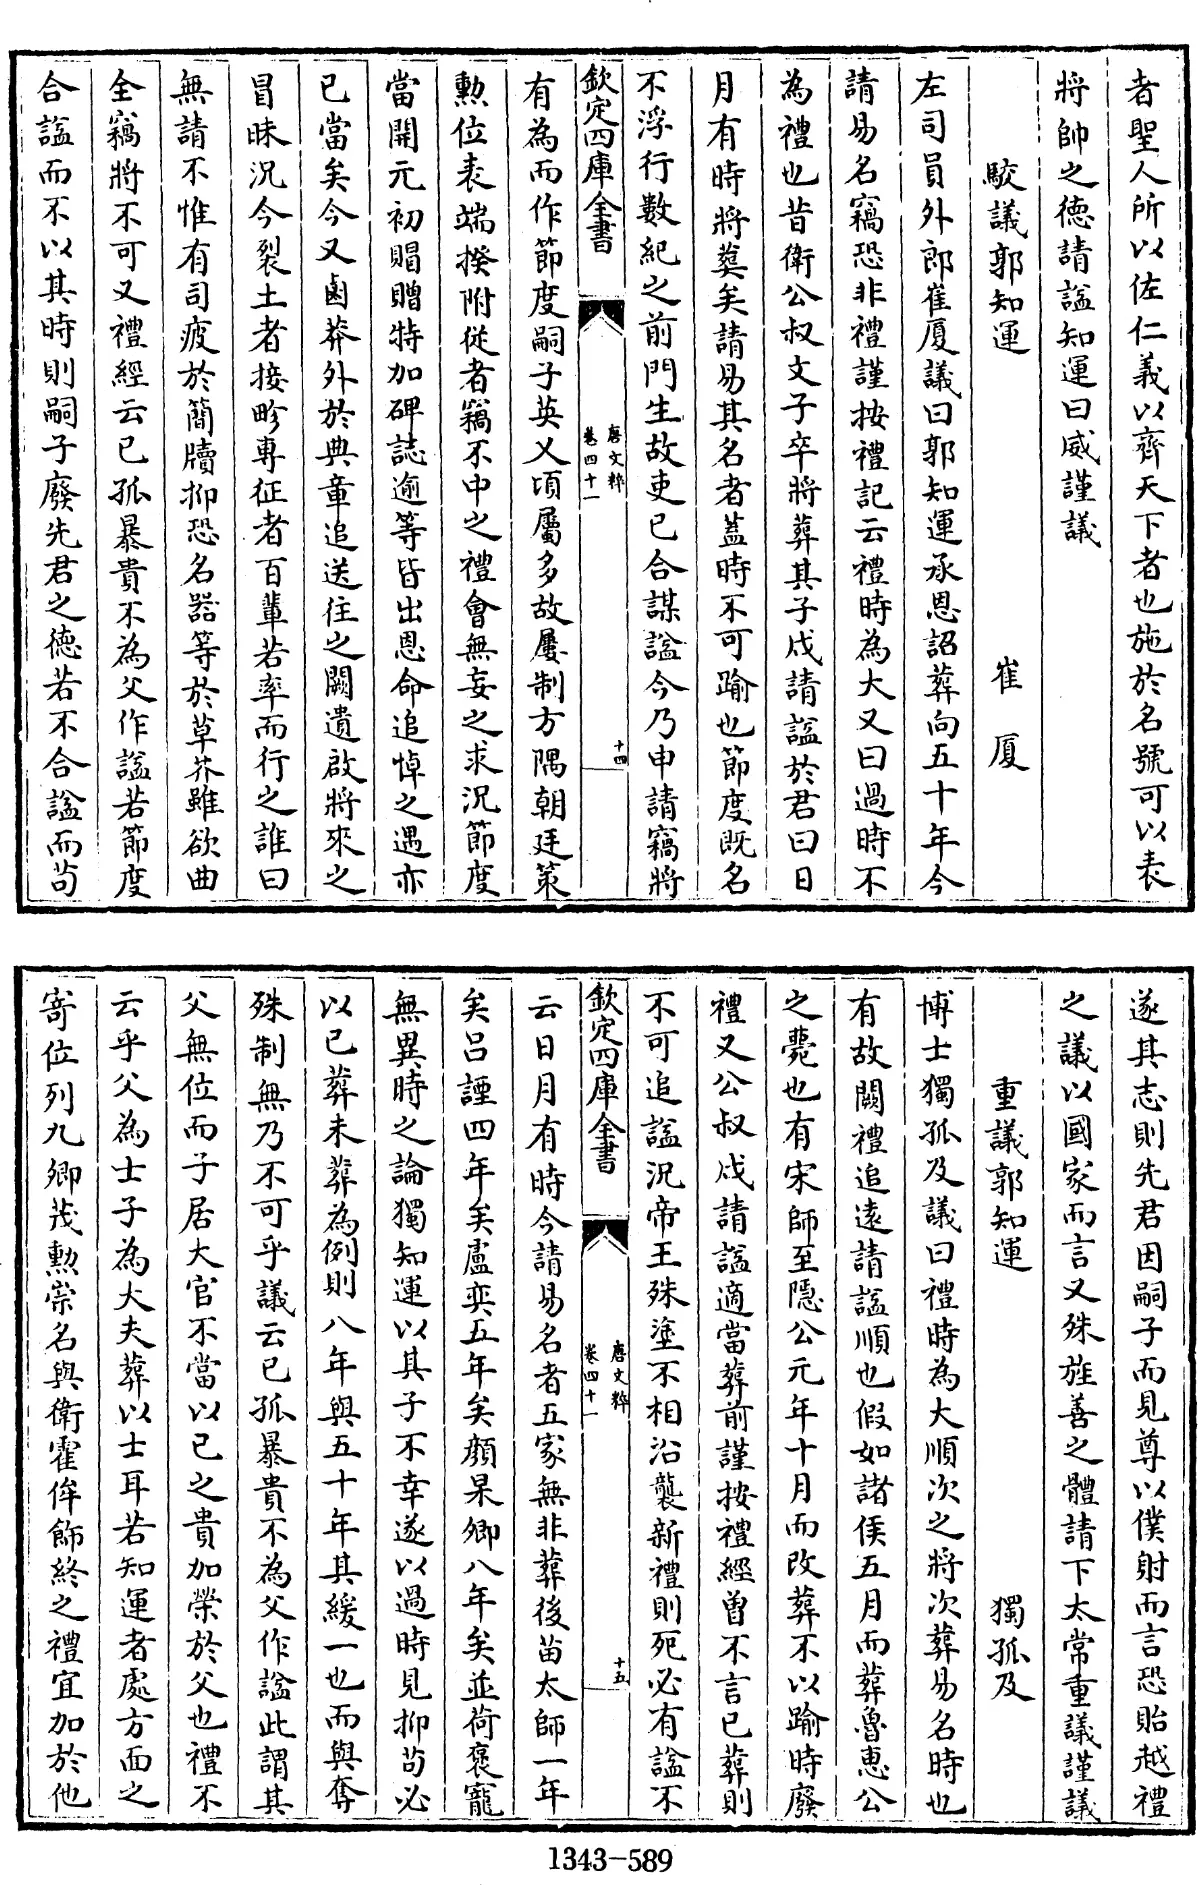 者聖人所以佐仁義以齊天下者也施於名號可以表
將帥之德請諡知運曰威謹議
駮議郭知運 崔厦
左司員外郎崔厦議曰郭知運承恩詔葬向五十年今
請易名竊恐非禮謹按禮記云禮時為大又曰過時不
為禮也昔衛公叔文子卒將葬其子戍請諡於君曰日
月有時將葬矣請易其名者蓋時不可踰也節度既名
不浮行數紀之前門生故吏已合謀諡今乃申請竊將
欽定四庫全書 唐文粹 卷四十一 十四
有為而作節度嗣子英乂頃屬多故屢制方隅朝廷策
勲位表端揆附從者竊不中之禮會無妄之求況節度
當開元初賵贈特加碑誌逾等皆出恩命追悼之遇亦
已當矣今又鹵莽外於典章追送往之闕遺啟將來之
冒昧況今裂土者接畛專征者百輩若率而行之誰曰
無請不惟有司疲於簡牘抑恐名器等於草芥雖欲曲
全竊將不可又禮經云已孤暴貴不為父作諡若節度
合諡而不以其時則嗣子廢先君之德若不合諡而茍
遂其志則先君因嗣子而見尊以僕射而言恐貽越禮
之議以國家而言又殊旌善之體請下太常重議謹議
重議郭知運 獨孤及
博士獨孤及議曰禮時為大順次之將次葬易名時也
有故闕禮追遠請諡順也假如諸侯五月而葬魯惠公
之薨也有宋師至隱公元年十月而改葬不以踰時廢
禮又公叔戍請諡適當葬前謹按禮經曽不言已葬則
不可追諡況帝王殊塗不相沿襲新禮則死必有諡不
欽定四庫全書 唐文粹 卷四十一 十五
云日月有時今請易名者五家無非葬後苗太師一年
矣呂諲四年矣盧奕五年矣顔杲卿八年矣並荷褒寵
無異時之論獨知運以其子不幸遂以過時見抑茍必
以已葬未葬為例則八年與五十年其緩一也而與奪
殊制無乃不可乎議云已孤暴貴不為父作諡此謂其
父無位而子居大官不當以己之貴加榮於父也禮不
云乎父為士子為大夫葬以士耳若知運者處方面之
寄位列九卿茂勲崇名與衛霍侔飾終之禮宜加於他
1343-589